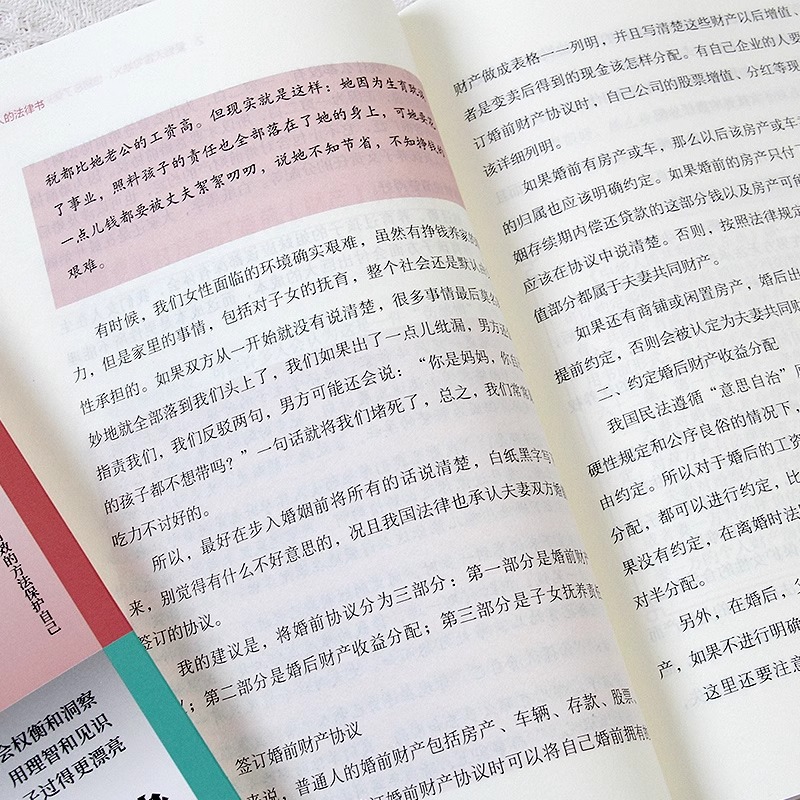 人的法律书
税都比她老公的工资高。但现实就是这样：她因为生育耽
了事业，照料孩子的责任也全部落在了她的身上，可她
一点儿钱都要被丈夫絮絮叨叨，说她不知节省，不知挣钱
艰难。
有时候，我们女性面临的环境确实艰难，虽然有挣钱养家
力，但是家里的事情，包括对子女的抚育，整个社会还是默认
性承担的。如果双方从一开始就没有说清楚，很多事情最后莫
妙地就全部落到我们头上了，我们如果出了一点儿纰漏，男方
指责我们，我们反驳两句，男方可能还会说：“你是妈妈，你
的孩子都不想带吗？”一句话就将我们堵死了，总之，我们常常
吃力不讨好的。
所以，最好在步入婚姻前将所有的话说清楚，白纸黑字写
来，别觉得有什么不好意思的，况且我国法律也承认夫妻双方婚
签订的协议。
我的建议是，将婚前协议分为三部分：第一部分是婚前
；第二部分是婚后财产收益分配；第三部分是子女抚养责
签订婚前财产协议
来说，普通人的婚前财产包括房产、车辆、存款、股票
订婚前财产协议时可以将自己婚前拥有
财产做成表格一一列明，并且写清楚这些财产以后增值、
者是变卖后得到的现金该怎样分配。有自己企业的人要
订婚前财产协议时，自己公司的股票增值、分红等现
该详细列明。
如果婚前有房产或车，那么以后该房产或车
的归属也应该明确约定。如果婚前的房产只付了
姻存续期内偿还贷款的这部分钱以及房产可能
应该在协议中说清楚。否则，按照法律规定
值部分都属于夫妻共同财产。
如果还有商铺或闲置房产，婚后出
提前约定，否则会被认定为夫妻共同财
二、约定婚后财产收益分配
我国民法遵循“意思自治”原
硬性规定和公序良俗的情况下，
由约定。所以对于婚后的工资
分配，都可以进行约定，比
果没有约定，在离婚时法
对半分配。
另外，在婚后，
产，如果不进行明确
这里还要注意
效的方法保护自己
会权衡和洞察
用理智和见识
子过得更漂亮